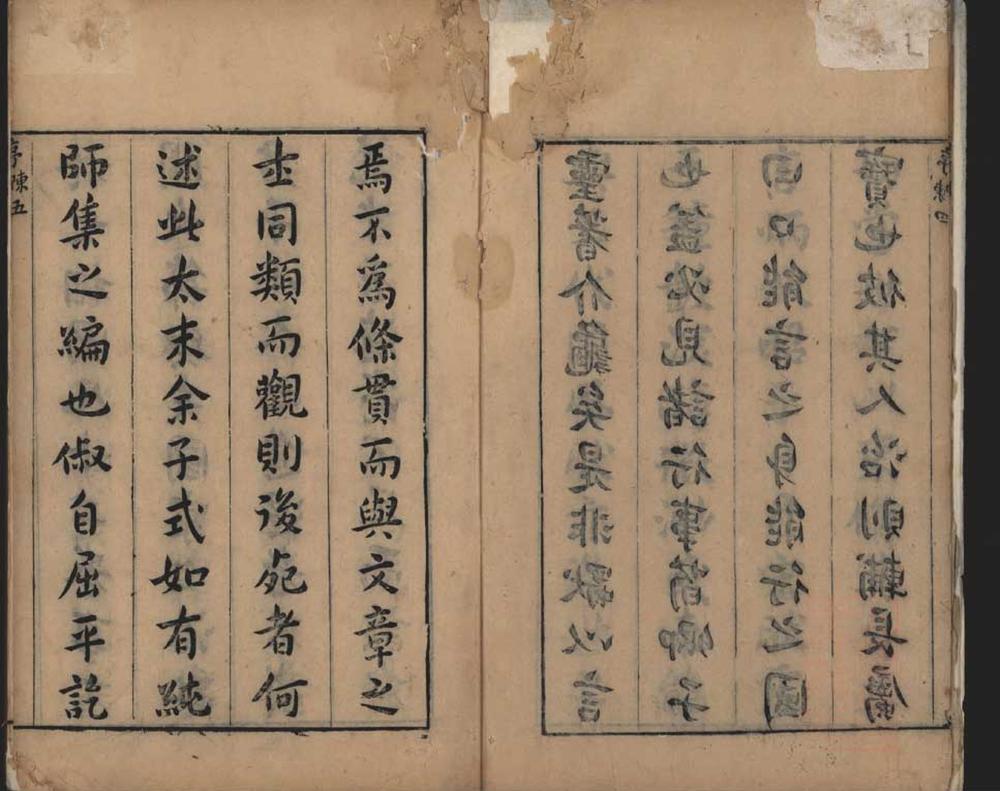 靈蓍介龜矣是非歟以言
也蓋必見諸行事荀卿子
曰口能言之身能行之國
寶也彼其人治則輔長
序陳四
焉不爲條貫而與文章之
士同類而觀則後死者何
述此太末余子式如有純
師集之編也俶自屈平訖
序陳五